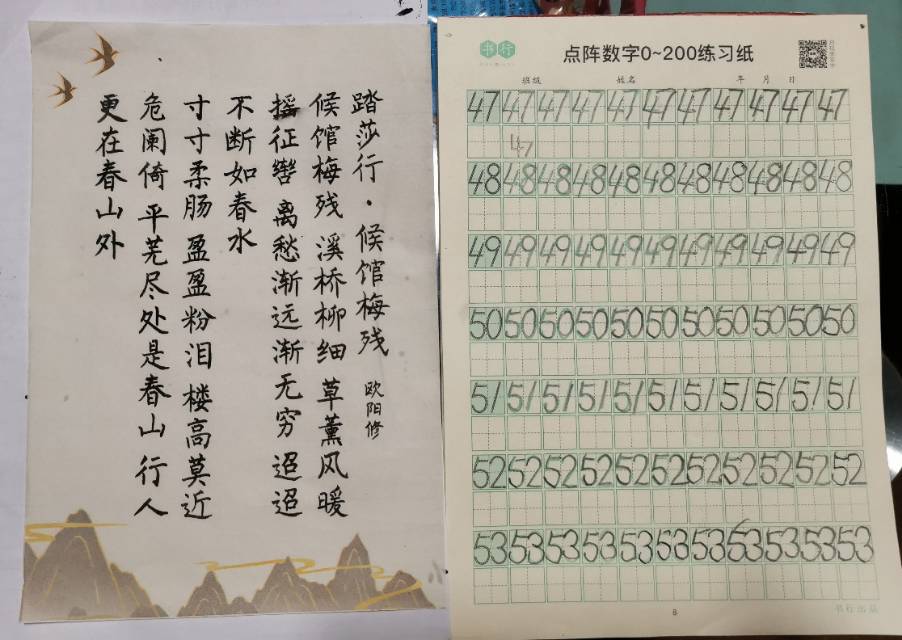 踏莎行·候馆梅残 欧阳修
候馆梅残 溪桥柳细 草薰风暖
摇征辔 离愁渐远渐无穷 迢迢
不断如春水
寸寸柔肠 盈盈粉泪 楼高莫近
危阑倚 平芜尽处是春山 行人
更在春山外
书行
点阵数字0~200练习纸
班级 姓名 年 月 日
47 47 47 47 47 47 47 47 47 47 47
47
48 48 48 48 48 48 48 48 48 48 48
49 49 49 49 49 49 49 49 49 49 49
50 50 50 50 50 50 50 50 50 50 50
51 51 51 51 51 51 51 51 51 51 51
52 52 52 52 52 52 52 52 52 52 52
53 53 53 53 53 53 53 53 53 53 53
8
书行出品